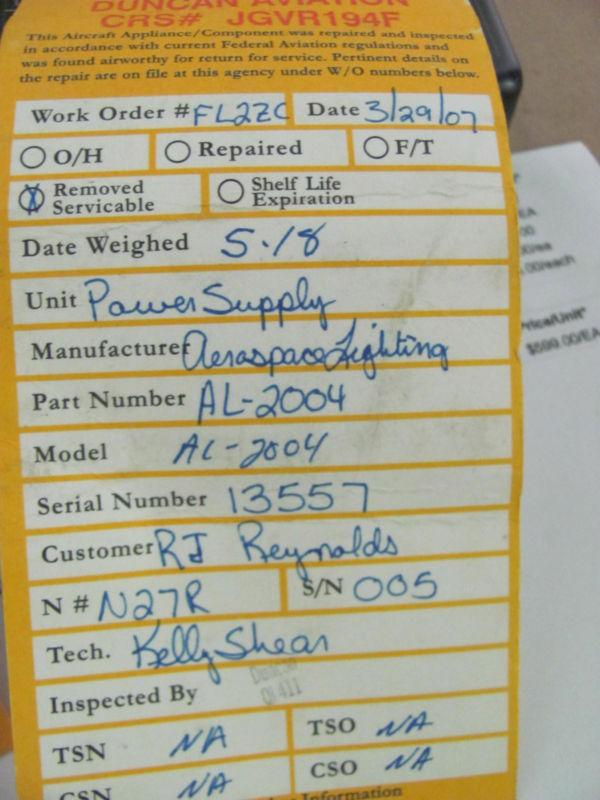 DUNCAN AVIATION
CRS# JGVR194F
This Aircraft Appliance/Component was repaired and inspected
in accordance with current Federal Aviation regulations and
was found airworthy for return for service. Pertinent details on
the repair are on file at this agency under W/O numbers below.
Work Order # FL2ZC Date 3/29/07
O/H Repaired F/T
Removed Servicable X Shelf Life Expiration
Date Weighed 5.18
Unit Power Supply
Manufacturer Aerospace Lighting
Part Number AL-2004
Model AL-2004
Serial Number 13557
Customer RJ Reynolds
N # N27R S/N 005
Tech. Kelly Shear
Inspected By Duncan
QI 411
TSN NA TSO NA
CSN NA CSO NA
Information
Price/Unit*
$599.00/EA